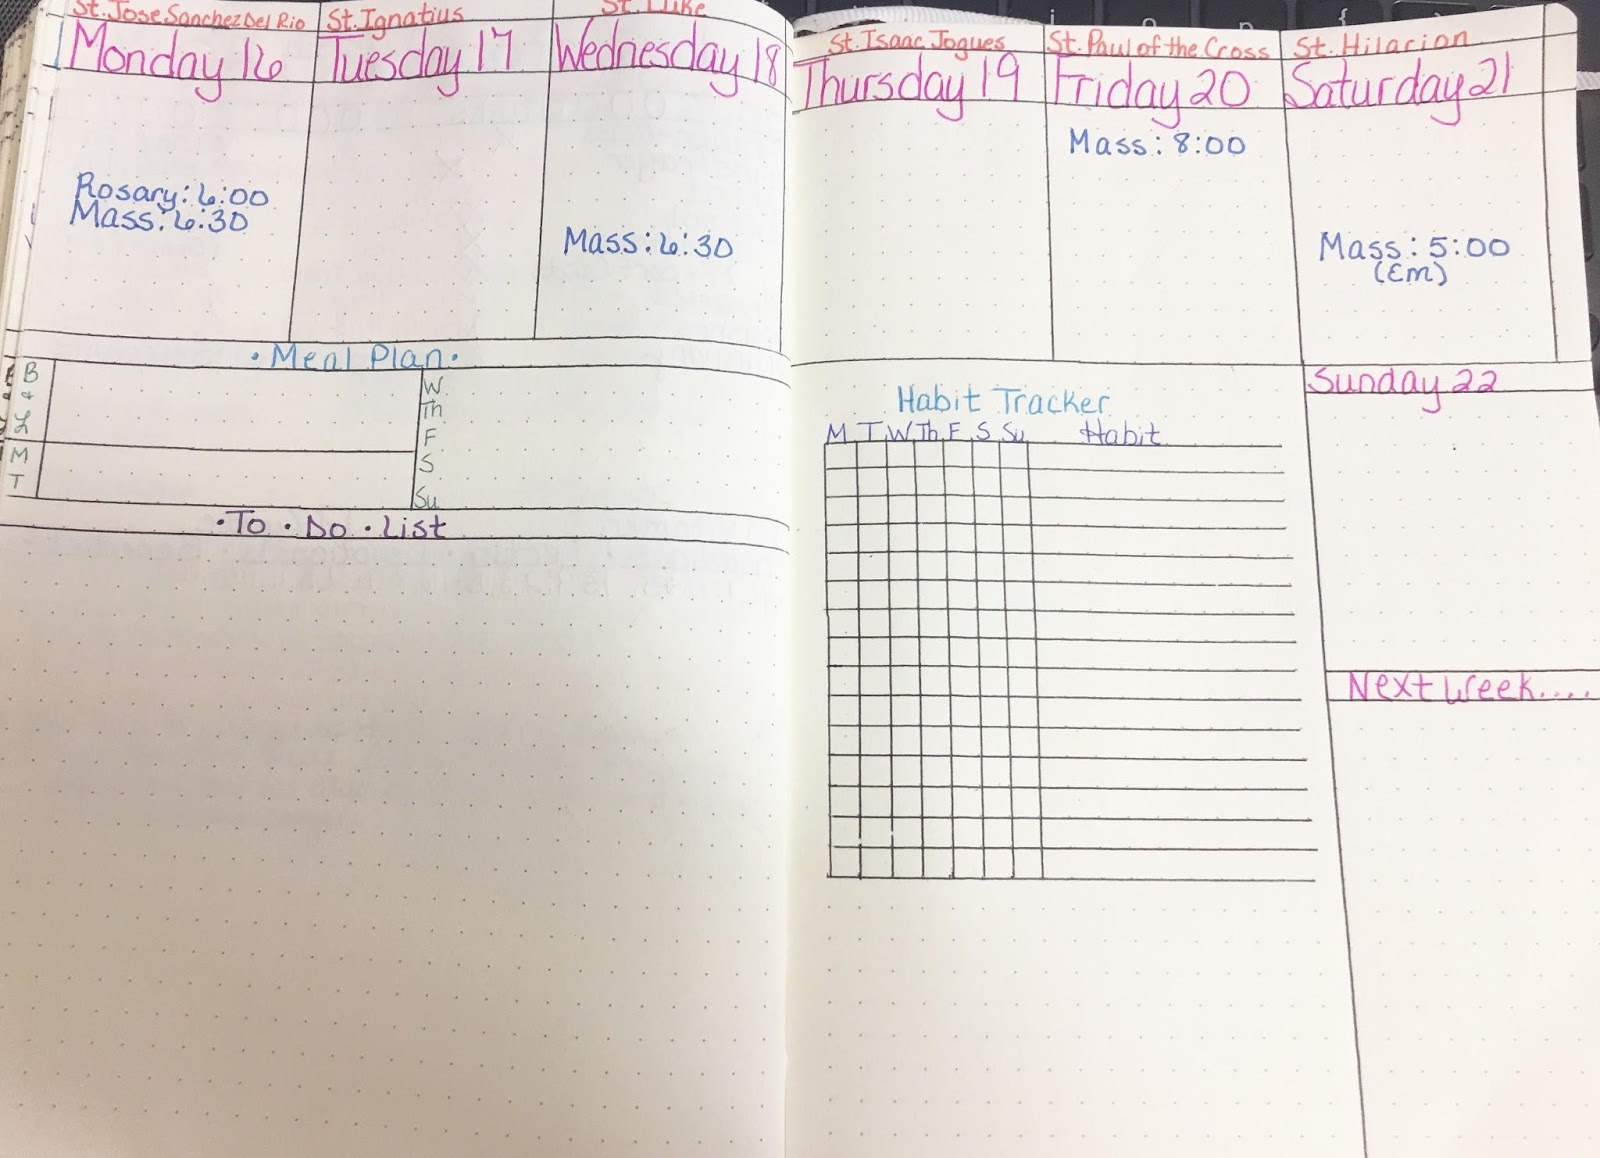 St. Jose Sanchez Del Rio
Monday 16
Rosary: 6:00
Mass: 6:30
St. Ignatius
Tuesday 17
St. Luke
Wednesday 18
Mass: 6:30
• Meal Plan •
B
+
L
M
T
W
Th
F
S
Su
• To • Do • List
St. Isaac Jogues
Thursday 19
St. Paul of the Cross
Friday 20
Mass: 8:00
St. Hilarion
Saturday 21
Mass: 5:00
(Em)
Habit Tracker
M T W Th F S Su Habit
Sunday 22
Next Week....